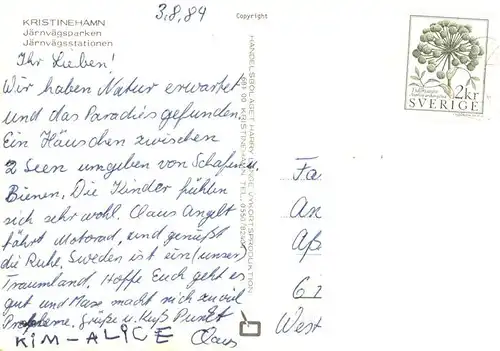 KRISTINEHAMN
Järnvägsparken
Järnvägsstationen
3.8.84
Copyright
Ihr Lieben!
Wir haben Natur erwartet
und das Paradies gefunden.
Ein Häuschen zwischen
2 Seen umgeben von Schafen u.
Bienen. Die Kinder fühlen
sich sehr wohl. Claus Angelt
fährt Motorad, und genießt
die Ruhe. Sweden ist ein (unser)
Traumland. Hoffe Euch geht es
gut und macht sich zuviel
Probleme. Grüße u. Kuß
KIM-ALICE Claus
HANDELSBOLAGET HARRY
681 00 KRISTINEHAMN TEL.
2 kr
SVERIGE
Fa
An
Aß
61
West